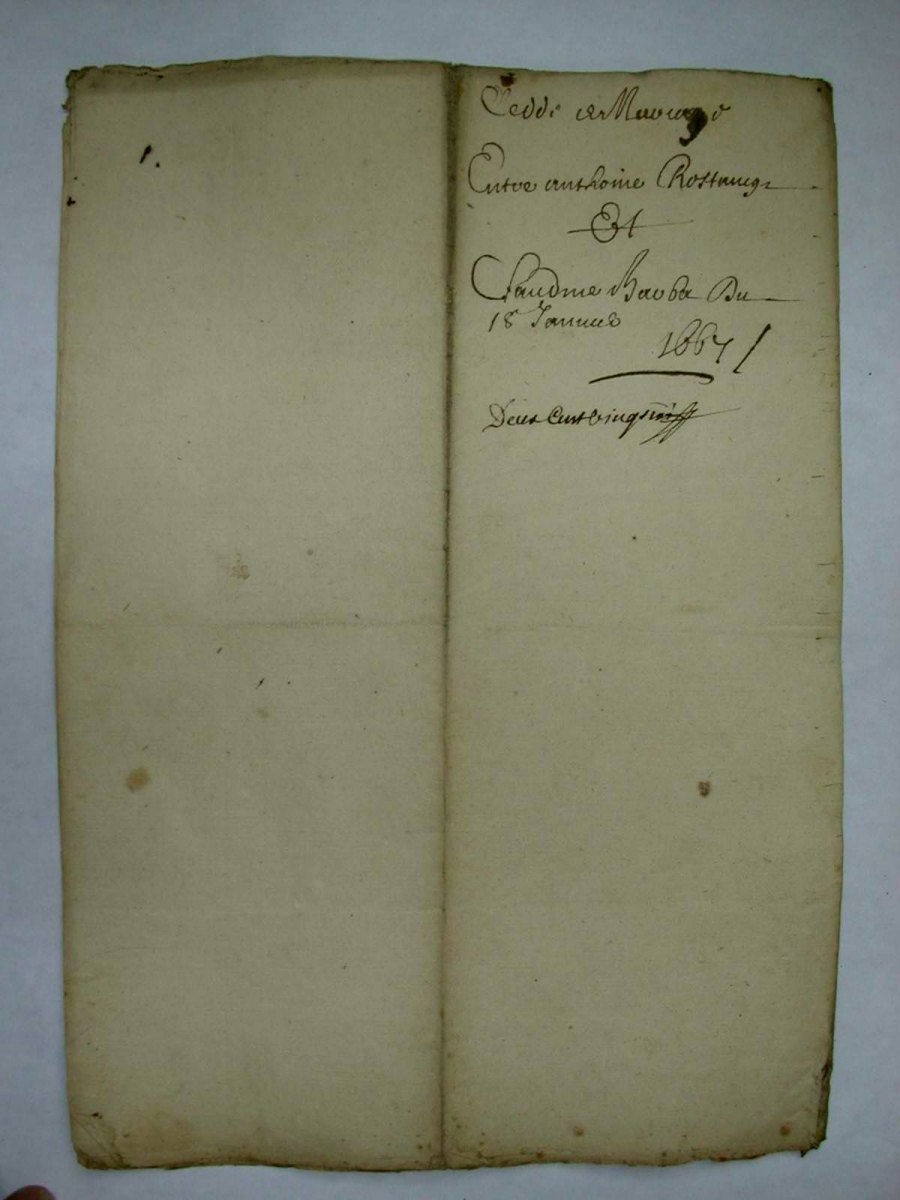 de Mariage
Entre anthoine Rostaing
Et
Claudine Barba Du
18 Januier
1667
Deux Cent Vingt